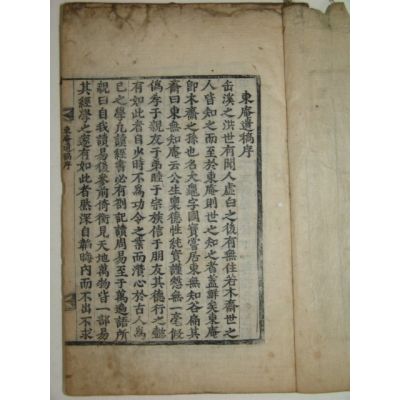 東庵遺稿序
缶溪之洪世有聞人虛白之後有無住若木齋世之
人皆知之而至於東庵則世之知之者蓋鮮矣東庵
即木齋之孫也名大龜字國寶嘗居東無知谷扁其
齋曰東無知庵云公生稟德性純實謹慤無一毫假
僞孝于親友于弟睦于宗族信于朋友其德行之懿
有如此者自少時不爲功令之業而潛心於古人爲
己之學凡讀經書必有劄記讀周易至于萬過語所
親曰自我讀易後參前倚衡見天地萬物皆一部易
其經學之邃有如此者然深自韜晦內而不出不求
東庵遺稿序